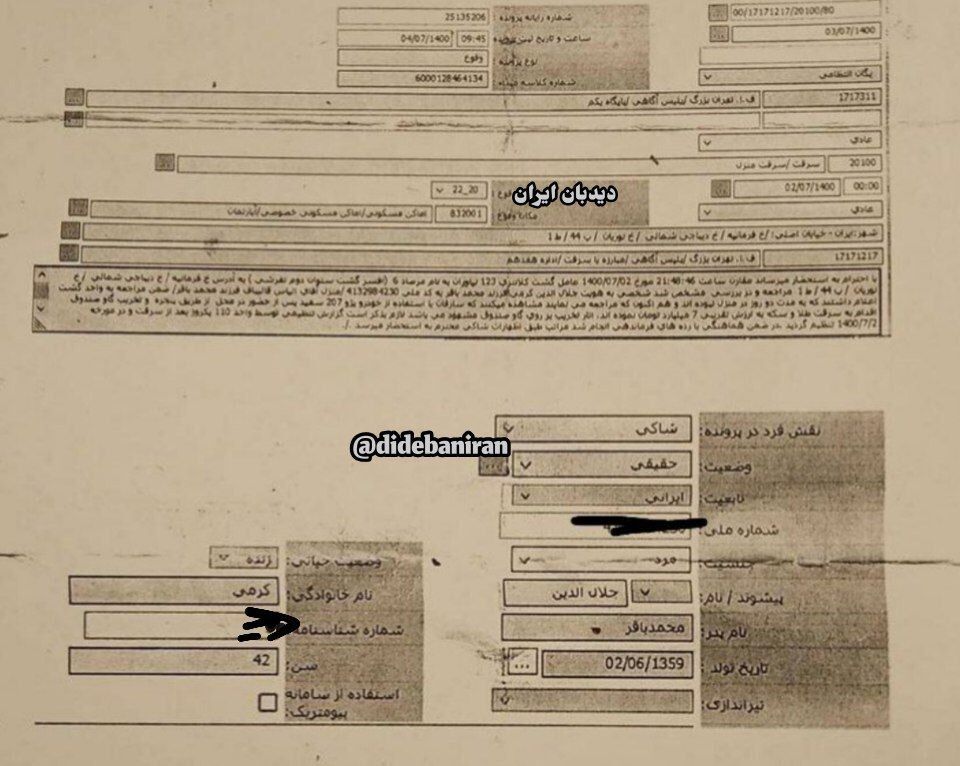 00/17171217/20100/80 شماره رایانه پرونده : 25135206
03/07/1400 ساعت و تاریخ ثبت پرونده : 09:45 04/07/1400
نوع پرونده : وقوع
یگان انتظامی شماره کلاسه : 6000128464134
1717311 ف.ا. تهران بزرگ /پلیس آگاهی /پایگاه یکم
عادی
20100 سرقت /سرقت منزل
00:00 02/07/1400 دیدبان ایران 20_22
عادی 832001 اماکن مسکونی/اماکن مسکونی خصوصی/آپارتمان
شهر:ایران - خیابان اصلی: /خ فرمانیه / خ دیباجی شمالی / خ نوریان / پ 44 / ط 1
17171217 ف.ا. تهران بزرگ /پلیس آگاهی /مبارزه با سرقت /اداره هفدهم
با احترام به استحضار میرساند مقارن ساعت 21:48:46 مورخ 1400/07/02 عامل گشت کلانتری 123 نیاوران به نام مرصاد 6 (افسر گشت ستوان دوم تفرشی ) به آدرس خ فرمانیه / خ دیباجی شمالی / خ
نوریان / پ 44 / ط 1 مراجعه و در بررسی مشخص شد شخصی به هویت جلال الدین کرمی/فرزند محمد باقر به کد ملی 4132984230 /منزل آقای الیاس قالیباف فرزند محمد باقر/ ضمن مراجعه به واحد گشت
اعلام داشتند که به مدت دو روز در منزل نبوده اند و هم اکنون که مراجعه می نمایند مشاهده میکنند که سارقان با استفاده از خودرو پژو 207 سفید پس از حضور در محل از طریق پنجره و تخریب گاو صندوق
اقدام به سرقت طلا و سکه به ارزش تقریبی 7 میلیارد تومان نموده اند، آثار تخریب بر روی گاو صندوق مشهود می باشد لازم بذکر است گزارش تنظیمی توسط واحد 110 یکروز بعد از سرقت و در مورخه
1400/7/2 تنظیم گردید .در ضمن هماهنگی با رده های فرماندهی انجام شد مراتب طبق اظهارات شاکی محترم به استحضار میرسد ./
نقش فرد در پرونده: شاکی
@didebaniran
وضعیت: حقیقی
تابعیت: ایرانی
شماره ملی:
جنسیت: مرد وضعیت حیاتی: زنده
پیشوند / نام: جلال الدین نام خانوادگی: کرمی
نام پدر: محمدباقر شماره شناسنامه:
تاریخ تولد : 02/06/1359 سن: 42
تیراندازی: استفاده از سامانه بیومتریک: